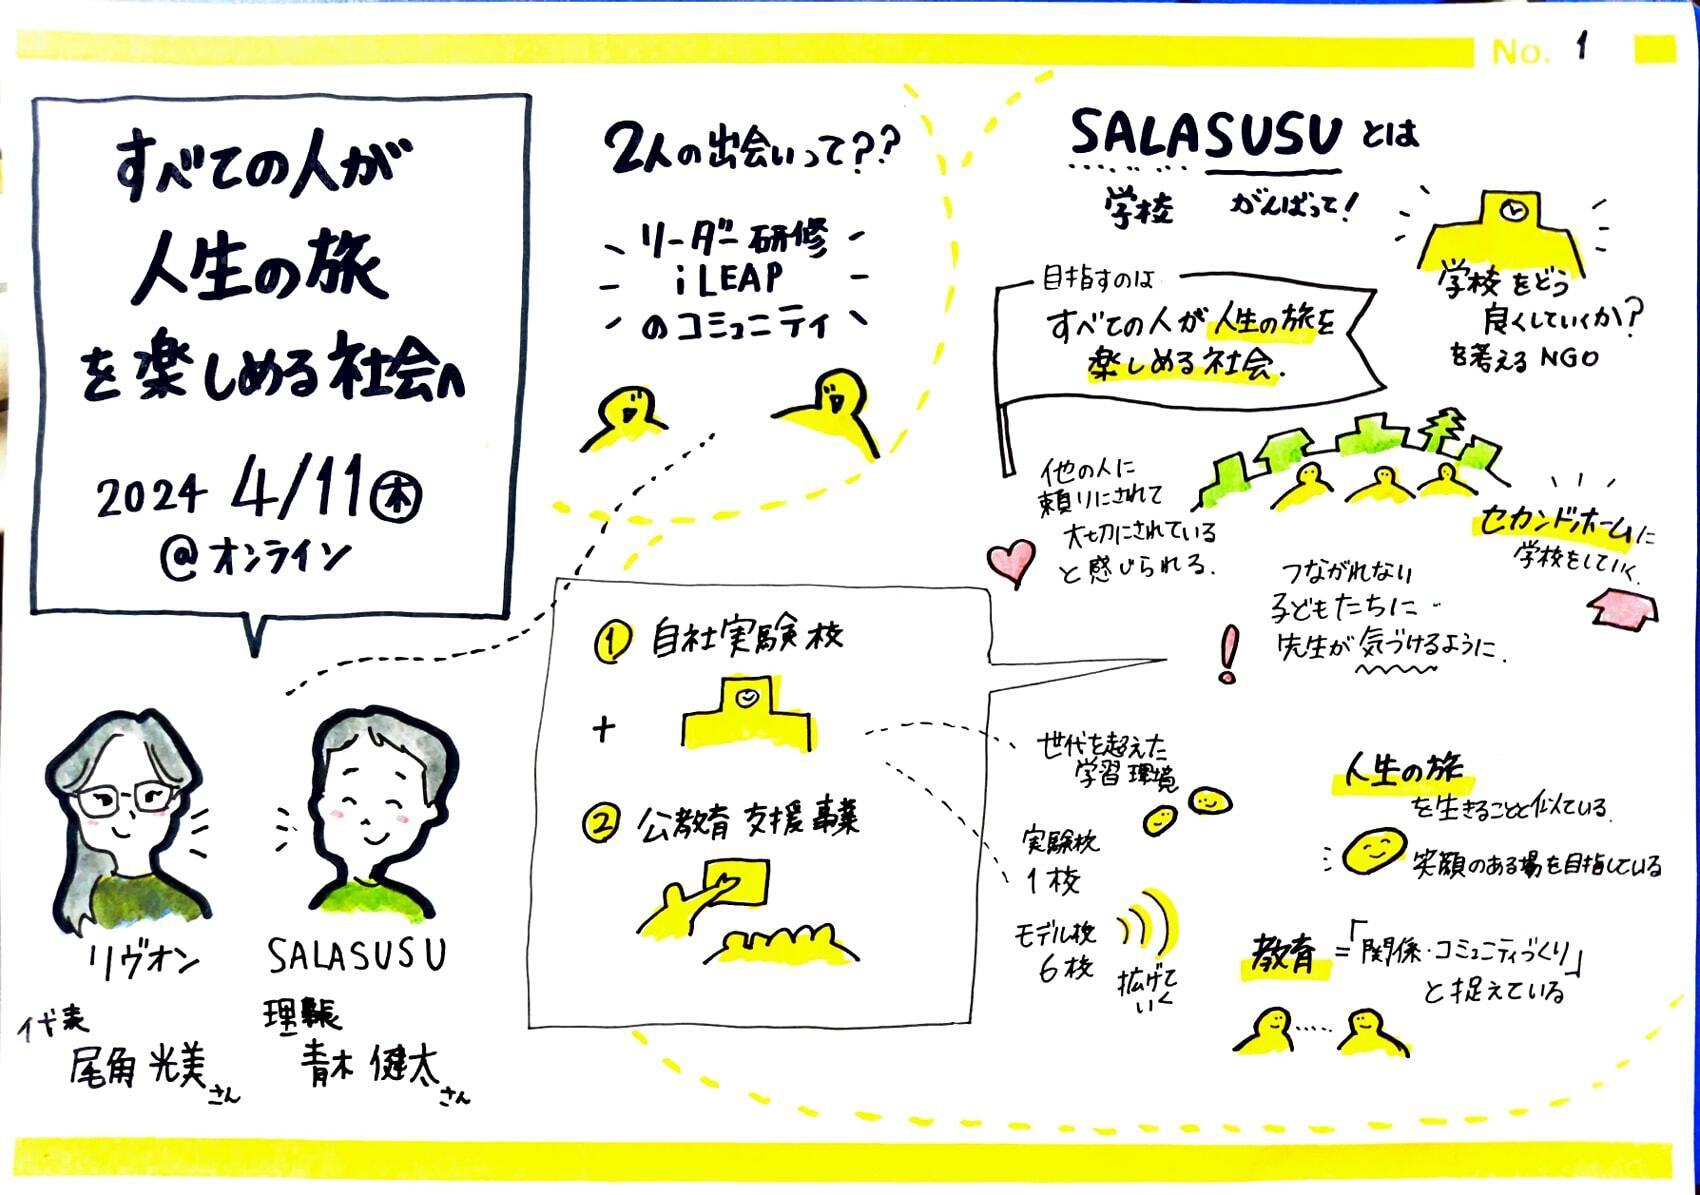 No. 1
すべての人が
人生の旅
を楽しめる社会へ
2024 4/11㊍
@オンライン
リヴオン
代表
尾角 光美さん
SALASUSU
理事長
青木 健太さん
2人の出会いって??
リーダー研修
iLEAP
のコミュニティ
SALASUSUとは
学校 がんばって!
学校をどう
良くしていくか?
を考えるNGO
目指すのは
すべての人が人生の旅を
楽しめる社会.
他の人に
頼りにされて
大切にされている
と感じられる.
セカンドホームに
学校をしていく.
つながれない
子どもたちに
先生が気づけるように.
① 自社実験校
+
② 公教育支援事業
世代を超えた
学習環境
実験校
1校
モデル校
6校
拡げて
いく
人生の旅
を生きることと似ている.
笑顔のある場を目指している
教育=「関係・コミュニティづくり」
と捉えている